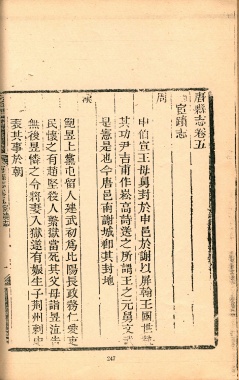 唐縣志卷五
宦蹟志
周
申伯宣王母舅封於申邑於謝以屏翰王國世
其功尹吉甫作崧高詩送之所謂王之元舅文武
是憲是也今唐邑南謝城即其封地
漢
鮑昱上黨屯留人建武初為比陽長政務仁愛吏
民懷之有趙堅殺人繫獄當死其父母詣昱泣告
無後昱憐之令將妻入獄遂有娠生子荊州刺史
表其事於朝
247